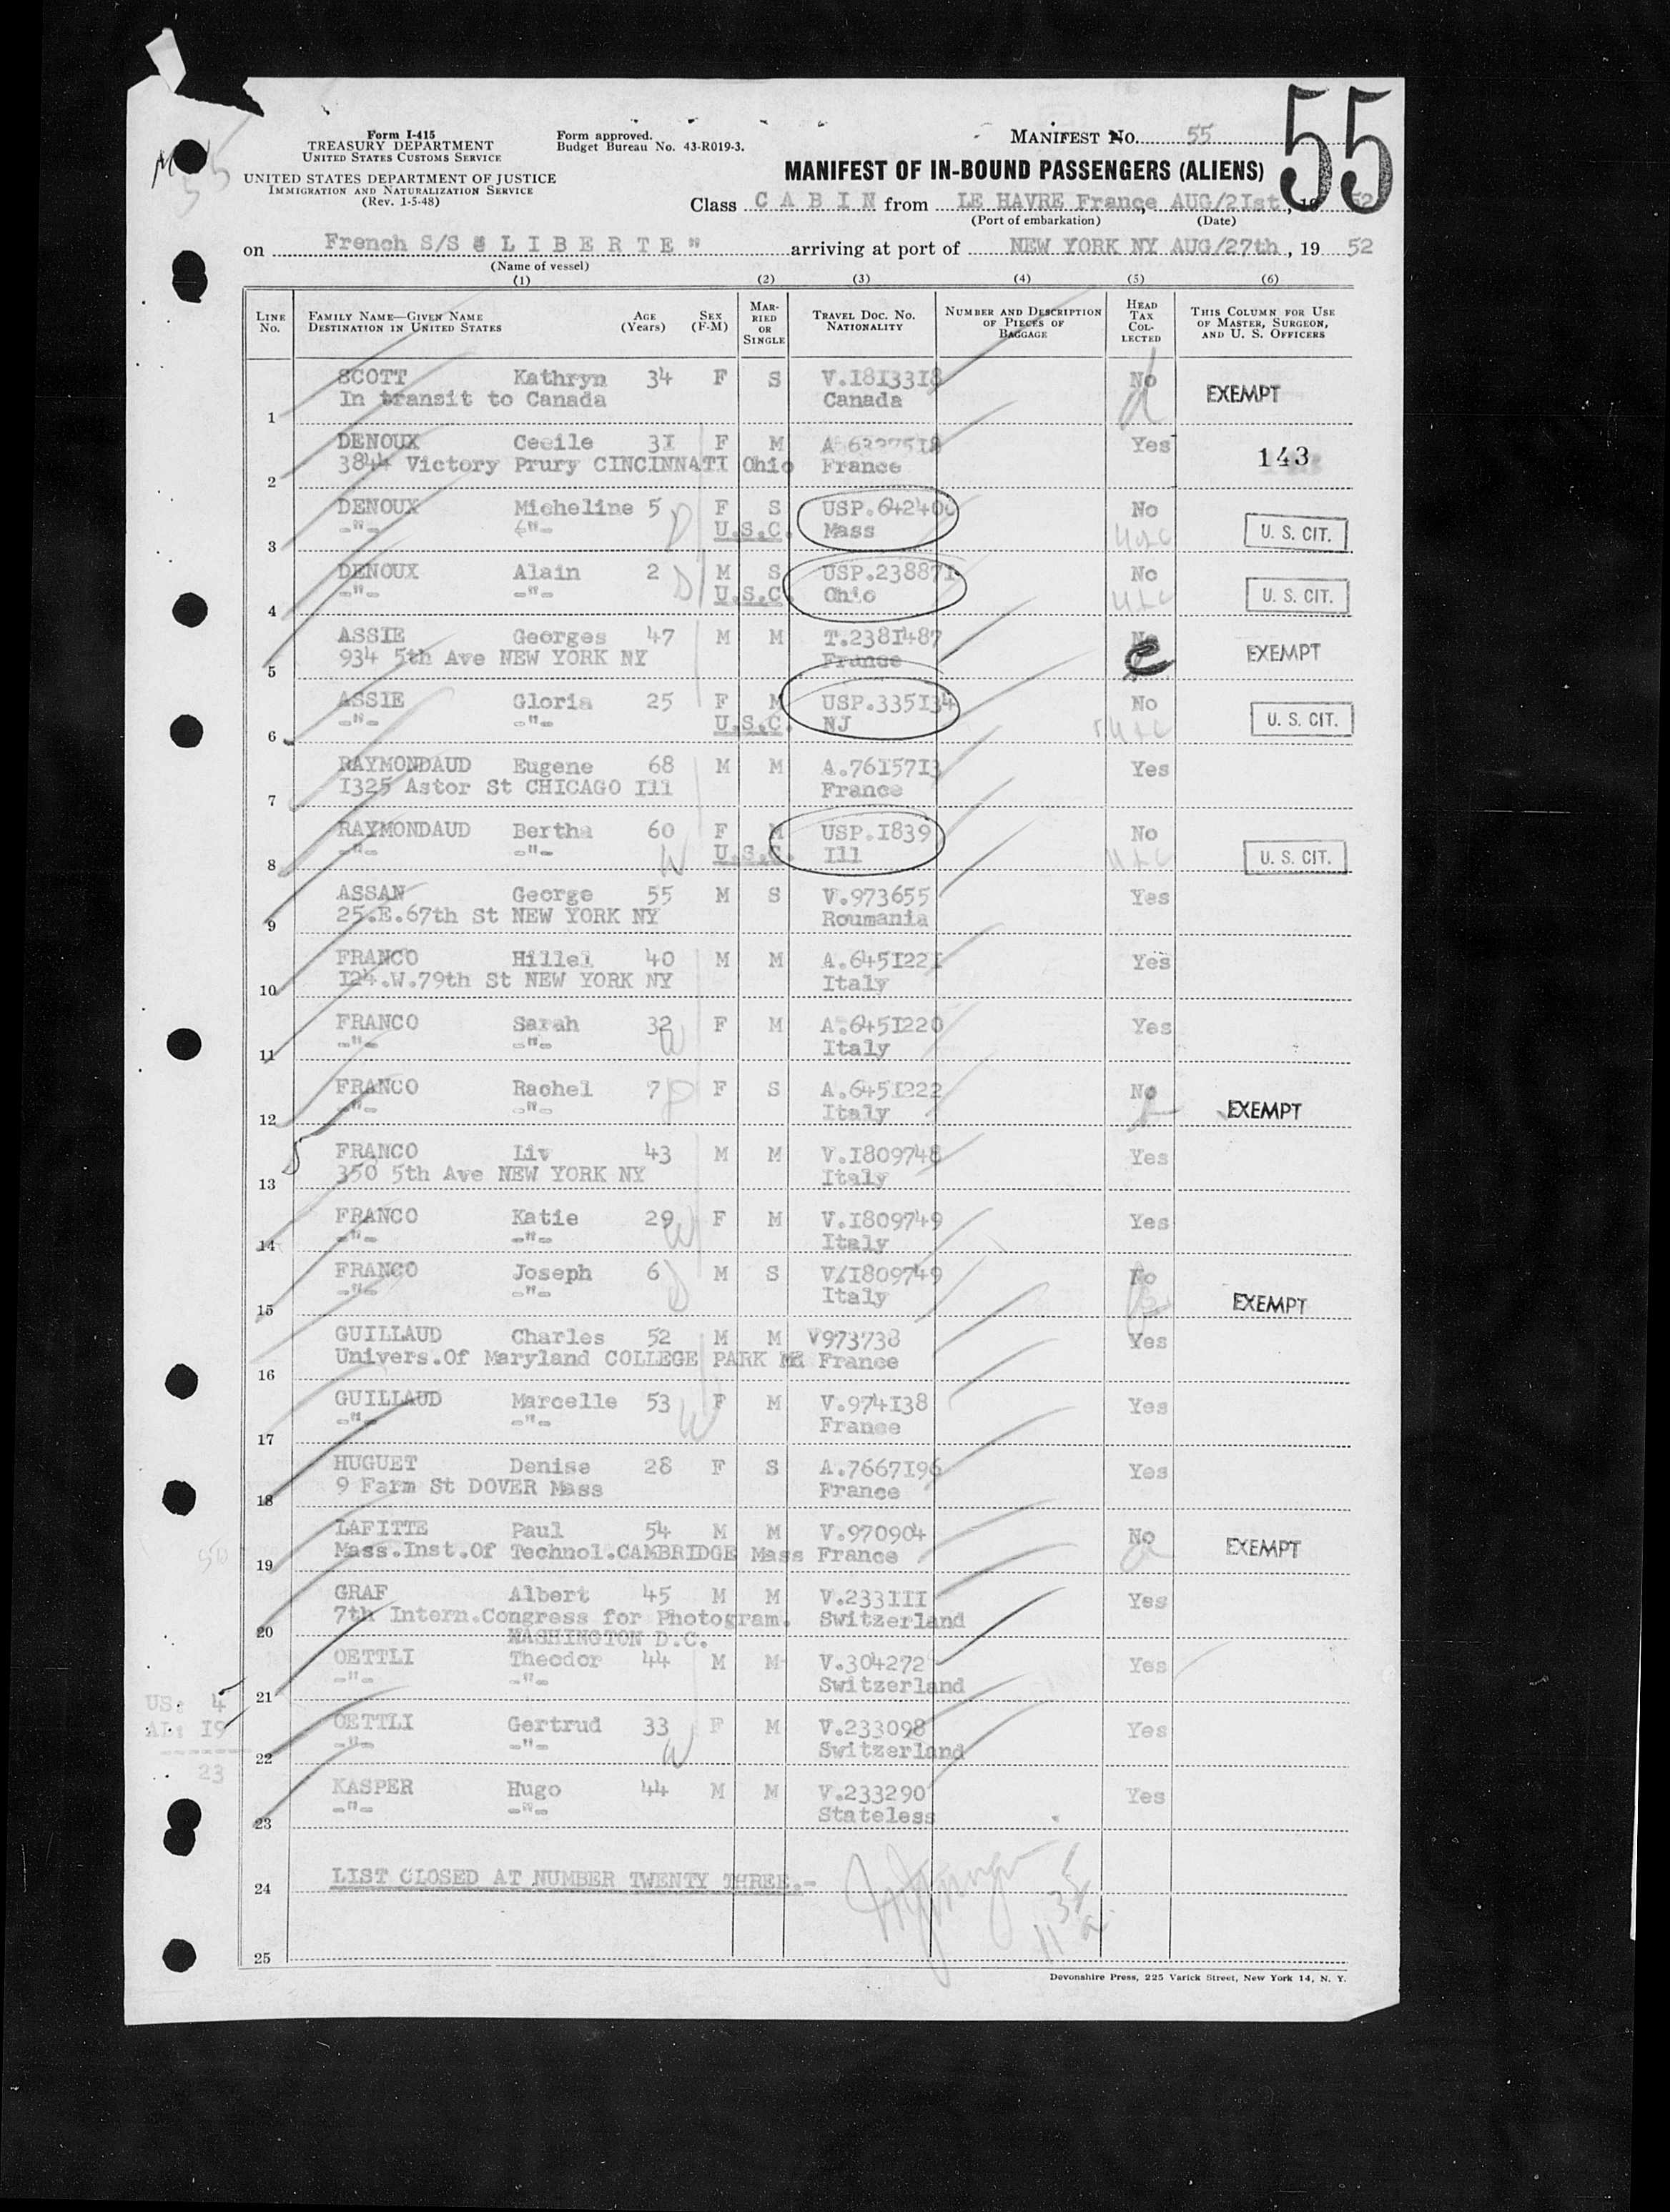 55
Form I-415
TREASURY DEPARTMENT
UNITED STATES CUSTOMS SERVICE
UNITED STATES DEPARTMENT OF JUSTICE
IMMIGRATION AND NATURALIZATION SERVICE
(Rev. 1-5-48)
Form approved.
Budget Bureau No. 43-R019-3.
MANIFEST NO. 55
MANIFEST OF IN-BOUND PASSENGERS (ALIENS)
Class C A B I N from LE HAVRE France, AUG/2Ist, 19 52
(Port of embarkation) (Date)
on French S/S " L I B E R T E " arriving at port of NEW YORK NY AUG/27th, 19 52
(Name of vessel)
(1) (2) (3) (4) (5) (6)
LINE No. FAMILY NAME—GIVEN NAME DESTINATION IN UNITED STATES AGE (Years) SEX (F-M) MARRIED OR SINGLE TRAVEL DOC. NO. NATIONALITY NUMBER AND DESCRIPTION OF PIECES OF BAGGAGE HEAD TAX COLLECTED THIS COLUMN FOR USE OF MASTER, SURGEON, AND U. S. OFFICERS
SCOTT Kathryn 34 F S V.18I3318 No EXEMPT
1 In transit to Canada Canada
DENOUX Cecile 3I F M A 63275I8 Yes 143
2 3844 Victory Prury CINCINNATI Ohio France
DENOUX Micheline 5 F S USP.642400 No
3 -"- -"- U.S.C. Mass U. S. CIT.
DENOUX Alain 2 M S USP.23887I No
4 -"- -"- U.S.C. Ohio U. S. CIT.
ASSIE Georges 47 M M T.238I487 No EXEMPT
5 934 5th Ave NEW YORK NY France
ASSIE Gloria 25 F M USP.335I34 No
6 -"- -"- U.S.C. NJ U. S. CIT.
RAYMONDAUD Eugene 68 M M A.76I57I3 Yes
7 I325 Astor St CHICAGO Ill France
RAYMONDAUD Bertha 60 F M USP.I839 No
8 -"- -"- U.S.C. Ill U. S. CIT.
ASSAN George 55 M S V.973655 Yes
9 25.E.67th St NEW YORK NY Roumania
FRANCO Hillel 40 M M A.645I22I Yes
10 I24.W.79th St NEW YORK NY Italy
FRANCO Sarah 32 F M A.645I220 Yes
11 -"- -"- Italy
FRANCO Rachel 7 F S A.645I222 No
12 -"- -"- Italy EXEMPT
FRANCO Liv 43 M M V.I809748 Yes
13 350 5th Ave NEW YORK NY Italy
FRANCO Katie 29 F M V.I809749 Yes
14 -"- -"- Italy
FRANCO Joseph 6 M S V/I809749 No
15 -"- -"- Italy EXEMPT
GUILLAUD Charles 52 M M V973738 Yes
16 Univers.Of Maryland COLLEGE PARK Md France
GUILLAUD Marcelle 53 F M V.974I38 Yes
17 -"- -"- France
HUGUET Denise 28 F S A.7667I96 Yes
18 9 Farm St DOVER Mass France
LAFITTE Paul 54 M M V.970904 No
19 Mass.Inst.Of Technol.CAMBRIDGE Mass France EXEMPT
GRAF Albert 45 M M V.233III Yes
7th Intern.Congress for Photogram. Switzerland
20 WASHINGTON D.C.
OETTLI Theodor 44 M M V.304272 Yes
21 -"- -"- Switzerland
US: 4
AL: I9
23
OETTLI Gertrud 33 F M V.233098 Yes
22 -"- -"- Switzerland
KASPER Hugo 44 M M V.233290 Yes
23 -"- -"- Stateless
24 LIST CLOSED AT NUMBER TWENTY THREE.-
25
Devonshire Press, 225 Varick Street, New York 14, N. Y.